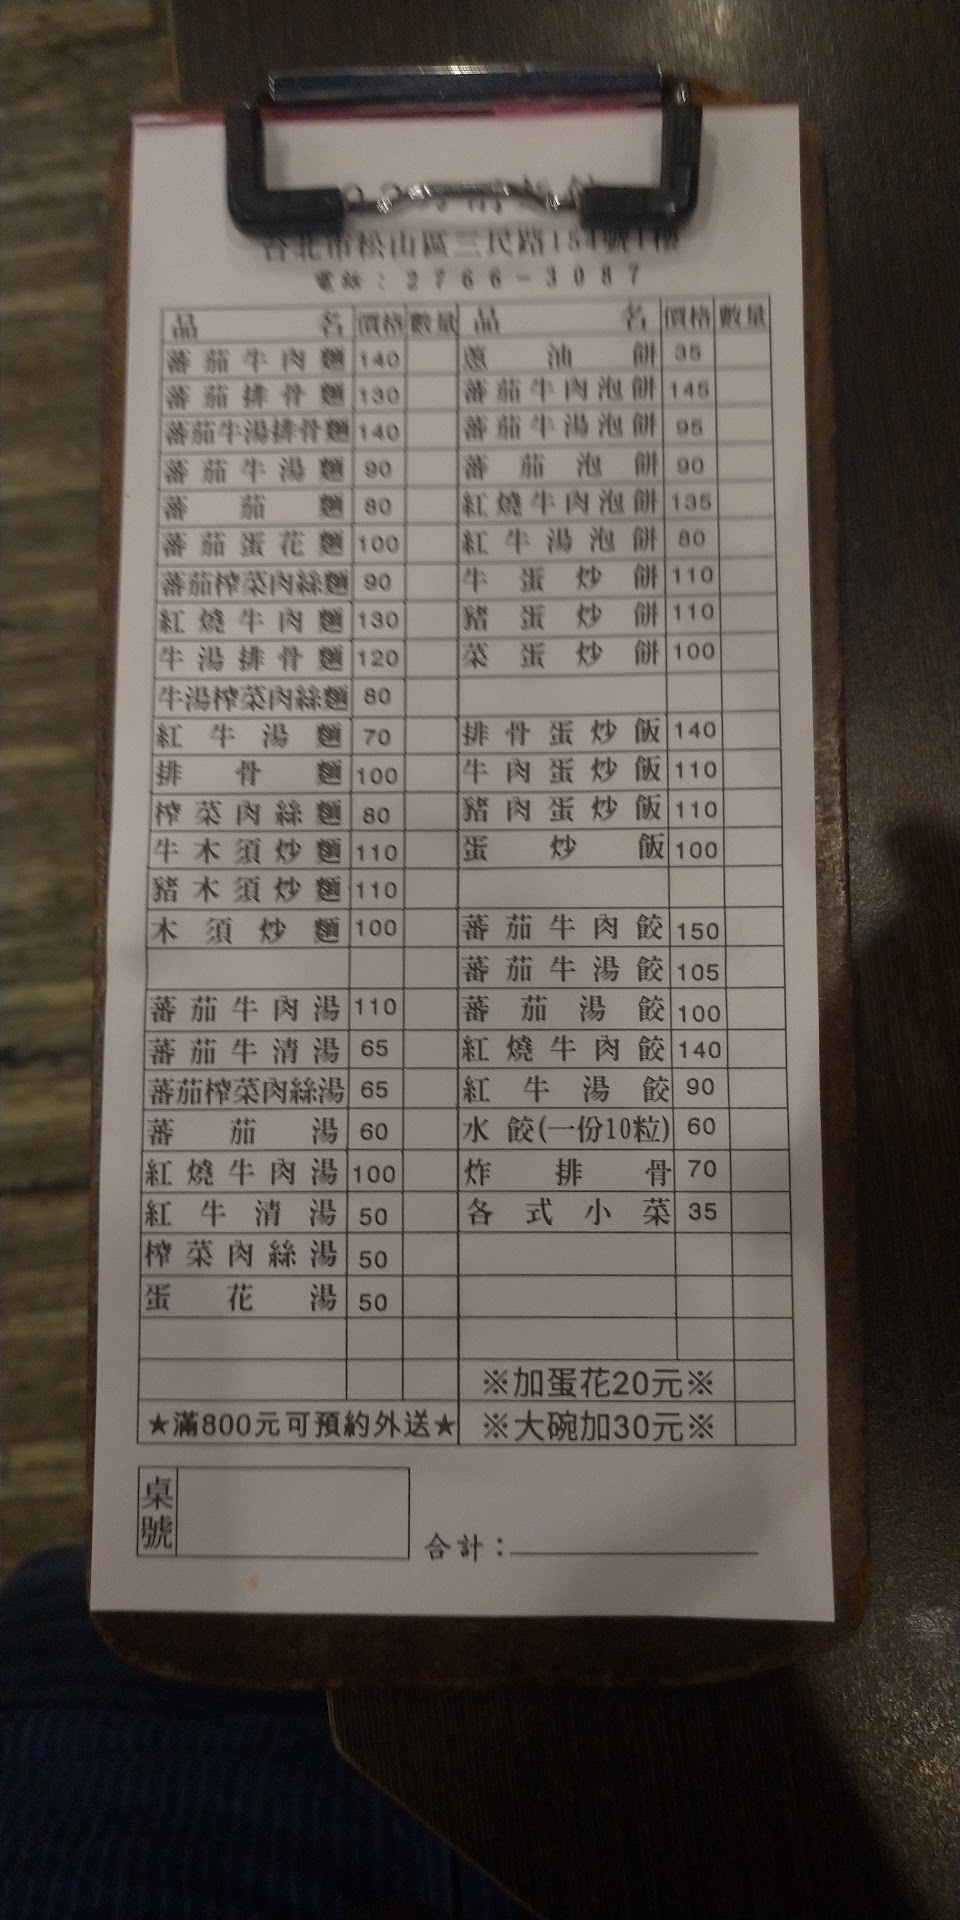 台北市松山區三民路154號1樓
電話：2766-3087
品名 價格 數量 品名 價格 數量
蕃茄牛肉麵 140 蔥油餅 35
蕃茄排骨麵 130 蕃茄牛肉泡餅 145
蕃茄牛湯排骨麵 140 蕃茄牛湯泡餅 95
蕃茄牛湯麵 90 蕃茄泡餅 90
蕃茄麵 80 紅燒牛肉泡餅 135
蕃茄蛋花麵 100 紅牛湯泡餅 80
蕃茄榨菜肉絲麵 90 牛蛋炒餅 110
紅燒牛肉麵 130 豬蛋炒餅 110
牛湯排骨麵 120 菜蛋炒餅 100
牛湯榨菜肉絲麵 80
紅牛湯麵 70 排骨蛋炒飯 140
排骨麵 100 牛肉蛋炒飯 110
榨菜肉絲麵 80 豬肉蛋炒飯 110
牛木須炒麵 110 蛋炒飯 100
豬木須炒麵 110
木須炒麵 100 蕃茄牛肉餃 150
蕃茄牛湯餃 105
蕃茄牛肉湯 110 蕃茄湯餃 100
蕃茄牛清湯 65 紅燒牛肉餃 140
蕃茄榨菜肉絲湯 65 紅牛湯餃 90
蕃茄湯 60 水餃(一份10粒) 60
紅燒牛肉湯 100 炸排骨 70
紅牛清湯 50 各式小菜 35
榨菜肉絲湯 50
蛋花湯 50
※加蛋花20元※
★滿800元可預約外送★ ※大碗加30元※
桌號
合計：